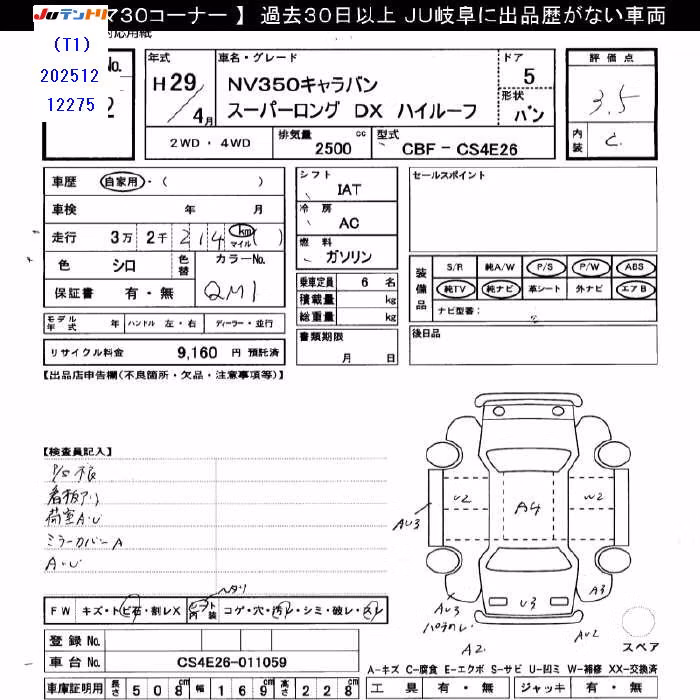 JUテントリ
ア30コーナー 】 過去30日以上 JU岐阜に出品歴がない車両
(T1)
202512
12275
応用紙
No.
2
年式
H29/4月
車名・グレード
NV350キャラバン
スーパーロング DX ハイルーフ
ドア
5
形状
バン
評価点
3.5
内装
C
2WD・4WD
排気量
2500 cc
型式
CBF-CS4E26
車歴 自家用・( )
車検 年 月
走行 3万 2千 214 km マイル ( )
色 シロ 色替 カラーNo.
QM1
保証書 有・無
モデル年式 年 ハンドル 左・右 ディーラー・並行
リサイクル料金 9,160 円 預託済
シフト
IAT
冷房
AC
燃料
ガソリン
乗車定員 6 名
積載量 kg
総重量 kg
書類期限
月 日
セールスポイント
装備品
S/R 純A/W P/S P/W ABS
純TV 純ナビ 革シート 外ナビ エアB
ナビ型番:
後日品
【出品店申告欄(不良箇所・欠品・注意事項等)】
【検査員記入】
P/S不良
看板アリ
荷室A・U
ミラーカバーA
A・U
FW キズ・トビ石・割レX
シート内装
ヘタリ
コゲ・穴・汚レ・シミ・破レ・スレ
U2
A4
U2
AU3
U3
A3
AU3
A2
AU2
スペア
登録No.
車台No. CS4E26-011059
車庫証明用 長さ 508 cm 幅 169 cm 高さ 228 cm
A-キズ C-腐食 E-エクボ S-サビ U-凹ミ W-補修 XX-交換済
工具 有・無 ジャッキ 有・無